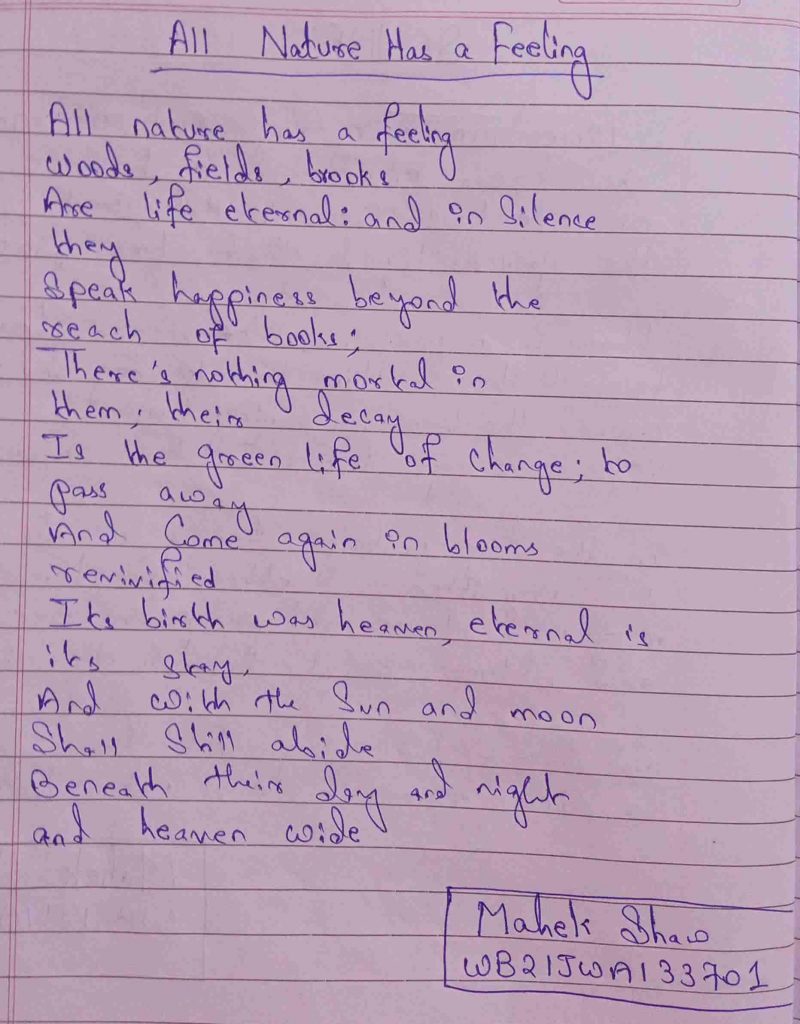 All Nature Has a Feeling
All nature has a feeling
woods, fields, brooks
Are life eternal: and in Silence
they
Speak happiness beyond the
reach of books;
There's nothing mortal in
them; their decay
Is the green life of change; to
pass away
And Come again in blooms
revivified
Its birth was heaven, eternal is
its stay,
And with the Sun and moon
Shall Still abide
Beneath their day and night
and heaven wide
Mahek Shaw
WB21JWA133701